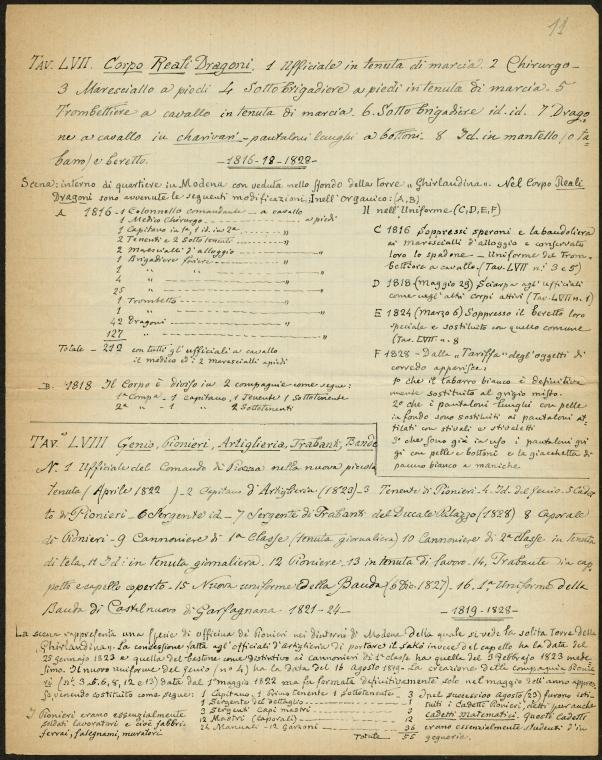 11
TAV. LVII. Corpo Reali Dragoni. 1 Ufficiale in tenuta di marcia. 2 Chirurgo -
3 Maresciallo a piedi 4 Sotto brigadiere a piedi in tenuta di marcia. 5
Trombettiere a cavallo in tenuta di marcia. 6. Sotto brigadiere id. id. 7 Drago
ne a cavallo in charivari - pantaloni lunghi a bottoni. 8 Id. in mantello (o ta
barro) e beretto. - 1816-18-1828 -
Scena: interno di quartiere in Modena con veduta nello sfondo della torre "Ghirlandina". Nel Corpo Reali
Dragoni sono avvenute le seguenti modificazioni, I nell'Organico: (A, B)
A 1816 - 1 Colonnello comandante - a cavallo
1 Medico Chirurgo - a piedi
1 Capitano in 1a, 1 id. in 2a - "
2 Tenenti e 2 Sotto tenenti - "
2 Marescialli d'alloggio - "
1 Brigadiere foriere - "
1 " " - "
4 " - "
25 " - "
1 Trombetta - "
1 " - "
42 Dragoni - "
127 " - "
Totale - 212 con tutti gl'ufficiali a cavallo
il medico id: 2 marescialli a piedi
B. 1818 Il Corpo è diviso in 2 compagnie come segue:
1a Compa - 1 capitano, 1 Tenente 1 Sottotenente
2a " - 1 " 2 Sottotenenti
II nell'Uniforme (C, D, E, F)
C 1816 Soppressi speroni e la bandoliera
ai marescialli d'alloggio e conservato
loro lo spadone - Uniforme del Trom-
bettiere a cavallo. (Tav. LVII n.i 3 e 5)
D 1818 (Maggio 29) Sciarpa agl'ufficiali
come negl'altri corpi attivi (Tav. LVII n. 1)
E 1824 (Marzo 6) Soppresso il beretto loro
speciale e sostituito con quello comune
(Tav. LVII n. 8
F 1828 - Dalla "Tariffa" degl'oggetti di
corredo apperisce:
1o che il tabarro bianco è definitiva
mente sostituito al grigio misto.
2o che i pantaloni lunghi con pelle
in fondo sono sostituiti ai pantaloni at-
tilati con stivali e stivaletti
3o che sono già in uso i pantaloni gri
gi con pelle e bottoni e la giacchetta di
panno bianco a maniche.
TAV. LVIII Genio, Pionieri, Artiglieria, Trabanti, Bande
No 1 Ufficiale del Comando di Piazza nella nuova piccola
tenuta (Aprile 1822) - 2 Capitano d'Artiglieria (1823) - 3 Tenente di Pionieri - 4 Id. del genio - 5 Cadet
to di Pionieri - 6 Sergente id - 7 Sergente di Trabanti del Ducale Palazzo (1828) 8 Caporale
di Pionieri - 9 Cannoniere di 1a Classe (tenuta giornaliera) 10 Cannoniere di 2a classe in tenuta
di tela, 11 Id: in tenuta giornaliera. 12 Pioniere, 13 in tenuta di lavoro. 14, Trabante in cap
potto e capello coperto - 15 Nuova uniforme della Banda (6 Dic. 1827). 16. 1a Uniforme della
Banda di Castelnuovo di Garfagnana. 1821-24 - - 1819-1828 -
La scena rappresenta una specie di officina di Pionieri nei dintorni di Modena della quale si vede la solita Torre della
Ghirlandina". La concessione fatta agl'ufficiali d'Artiglieria di portare il sakò invece del capello ha la data del
25 gennajo 1823 e quella del bastone come distintivo ai cannonieri di 1a classe ha quella del 9 Febbrajo 1823 mede
simo. Il nuovo uniforme del genio (no 4) ha la data del 16 agosto 1819 - La creazione della compagnia Pionie
ri (n.i 3, 5, 6, 8, 12 e 13) data dal 1o maggio 1822 ma fu formata definitivamente solo nel maggio dell'anno appres
so, venendo costituito come segue: 1 Capitano, 1 Primo tenente 1 Sottotenente - 3
1 Sergente del dettaglio - 1
3 Sergenti Capi mastri - 3
12 Mastri (Caporali) - 12
24 Manuali - 12 Garzoni - 36
Totale 55
I Pionieri erano essenzialmente
soldati lavoratori e cioè fabbri
ferrai, falegnami, muratori
nel successivo agosto (29) furono isti-
tuiti i Cadetti Pionieri, detti pur anche
cadetti matematici. Questi cadetti
erano essenzialmente studenti d'in
gegneria.